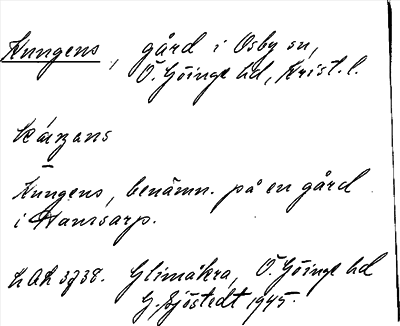 Kungens, gård i Osby sn,
Ö. Göinge hd, Krist. l.
Kungens, benämn. på en gård
i Hanssarp.
LAL 3738. Glimåkra, Ö. Göinge hd
G. Sjöstedt 1945.